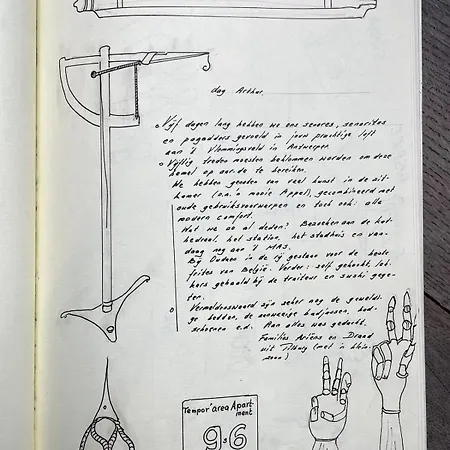 dag Arthur,
o Vijf dagen lang hebben we ons senores, senorites
en pogadders gevoeld in jouw prachtige loft
aan 't Vlemmingsveld in Antwerpen.
o Vijftig treden moesten beklommen worden om deze
hemel op aarde te bereiken.
We hebben genoten van veel kunst in de zit-
kamer (o.a. 'n mooie Appel), gecombineerd met
oude gebruiksvoorwerpen en toch ook: alle
modern comfort.
Wat we zo al deden? Bezoeken aan de kat-
hedraal, het station, het stadhuis en van-
daag nog aan 't MAS.
Bij in de rij gestaan voor de beste
frites van België. Verder: self gekookt, lek-
kers gehaald bij de traiteur en sushi gege-
ten.
o Vermeldenswaard zijn zeker nog de geweldi-
ge bedden, de aanwezige badjassen, bad-
schoenen e.d. Aan alles was gedacht.
Familie Ariëns en
uit Tilburg (met 'n klein-
zoon)
Tempor'area Apart
ment
9 6